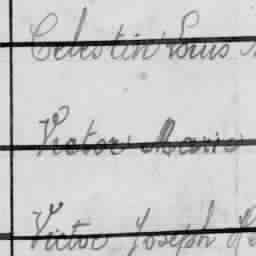 Celestin Louis
Victor Marie
Victor Joseph